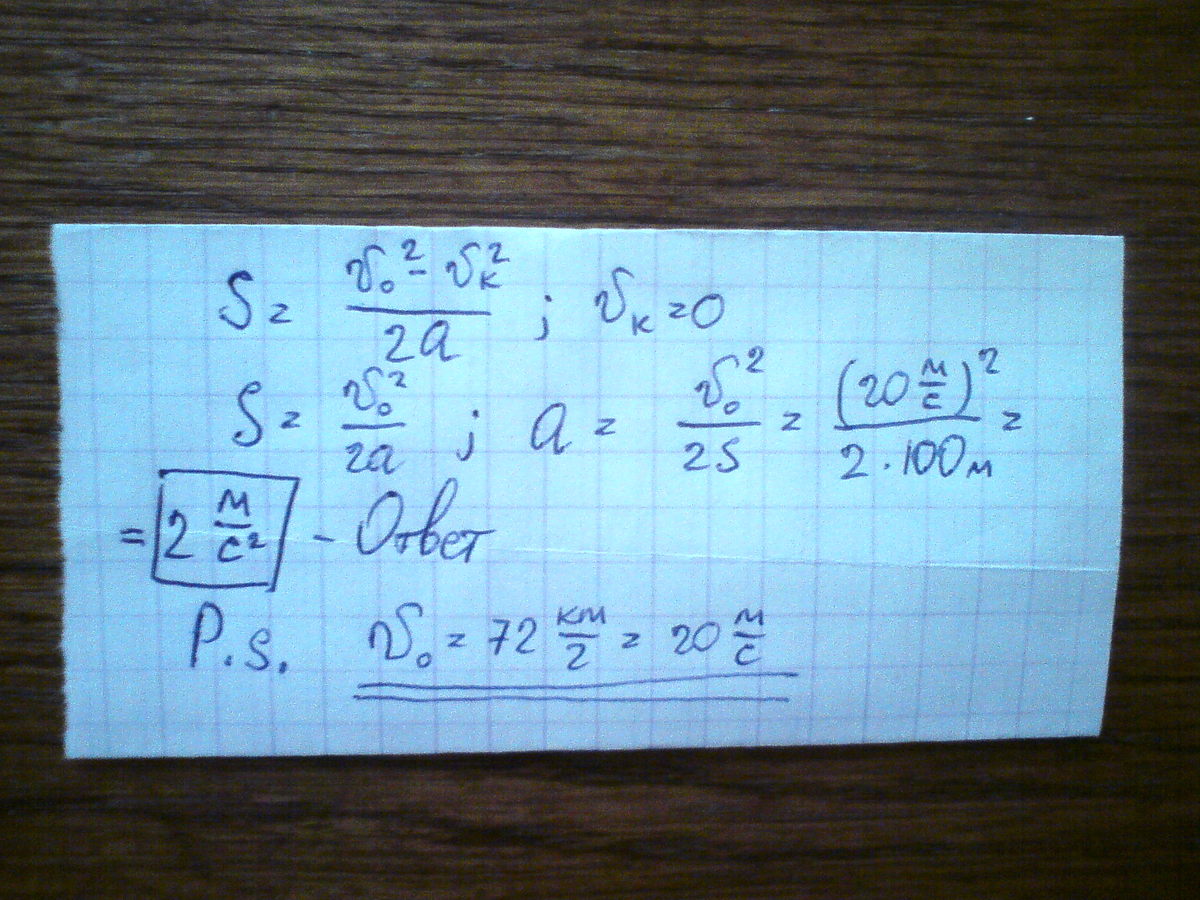 S = (v₀² - vₖ²)/2a ; vₖ = 0
S = v₀²/2a ; a = v₀²/2S = (20 м/с)²/2·100м =
= 2 м/с² - Ответ
P.s. v₀ = 72 км/г = 20 м/с